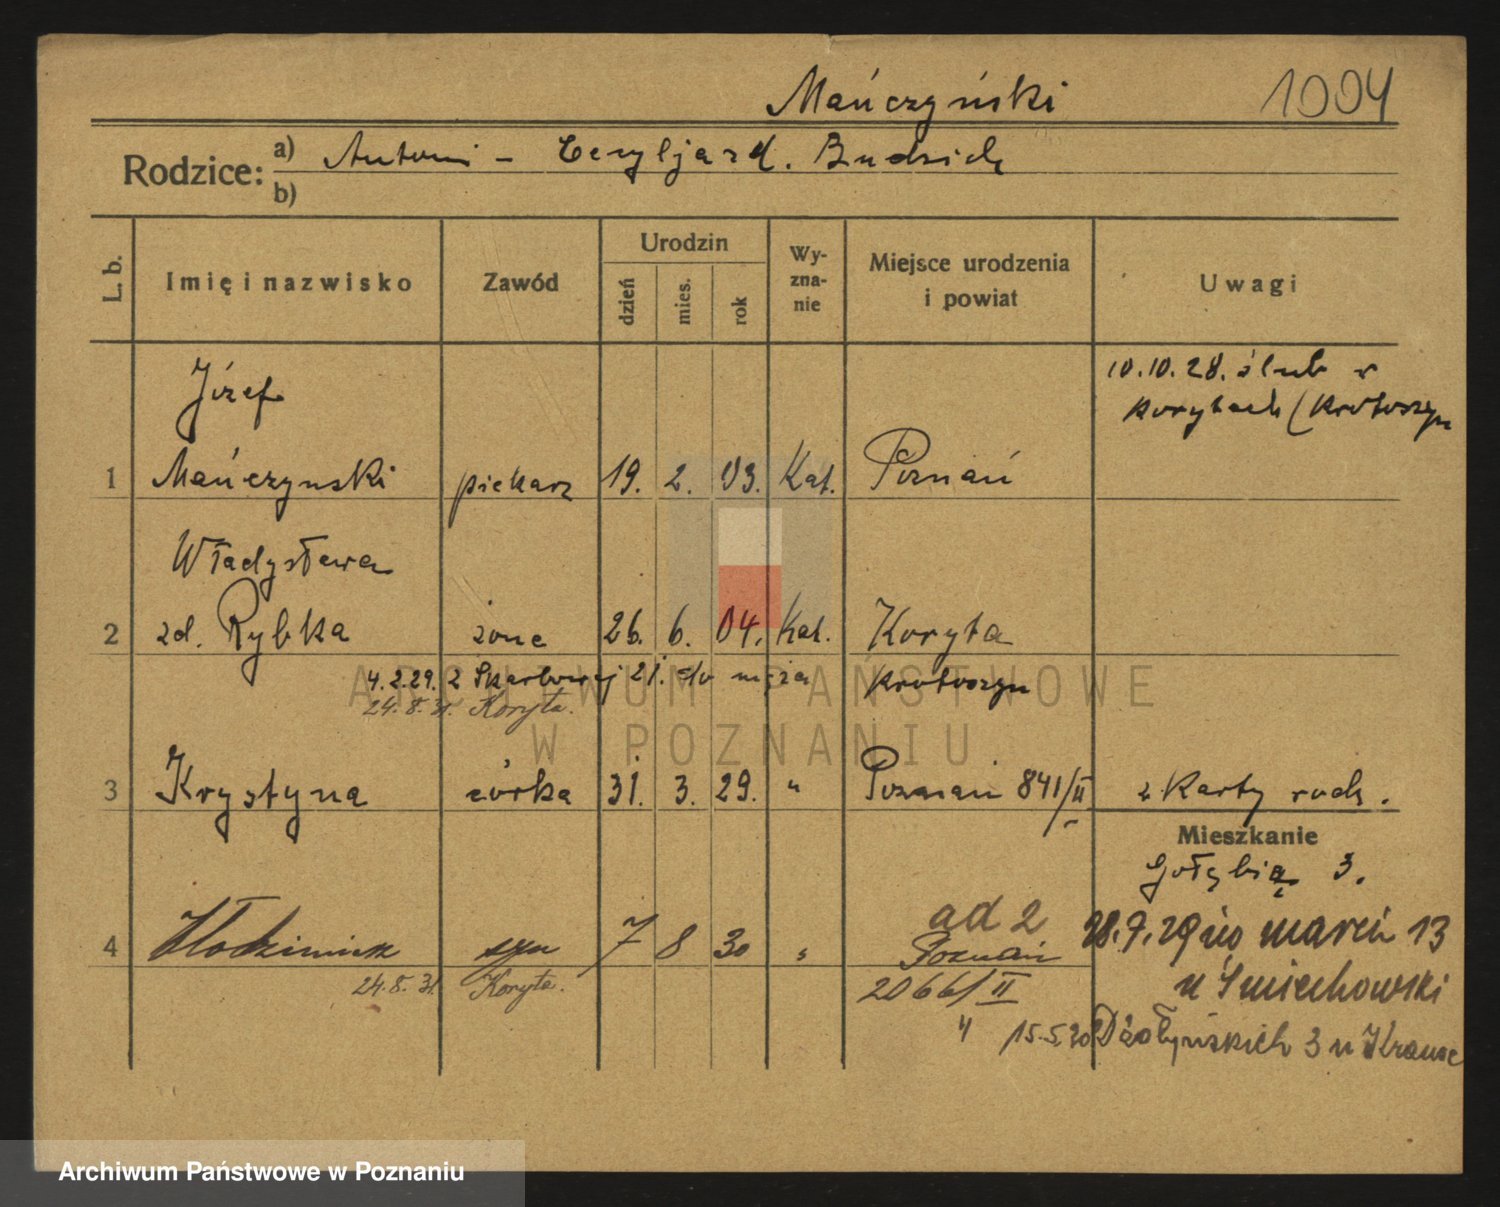 Mańczyński 1004
Rodzice: a) Antoni - Cecylja zd. Budzich
b)
L. b. Imię i nazwisko Zawód Urodzin dzień mies. rok Wy-zna-nie Miejsce urodzenia i powiat Uwagi
10.10.28. ślub w
Józef
Korytach (Krotoszyn
1 Mańczynski piekarz 19. 2. 03. Kat. Poznań
Władysława
2 zd. Rybka żona 26. 6. 04. Kat. Koryta
4.2.29. z Skarbowej 21. do męża Krotoszyn
24.8.31. Koryta.
3 Krystyna córka 31. 3. 29. " Poznań 841/II z Karty rodz.
Mieszkanie
Gołębia 3.
ad 2
28.7.29 Marcin 13
4 Włodzimierz syn 7 8 30 " Poznań
24.8.31. Koryta. 2066/II u Śmiechowski
" 15.5.30 Działyńskich 3 u Krause
ARCHIWUM PAŃSTWOWE
W POZNANIU
Archiwum Państwowe w Poznaniu